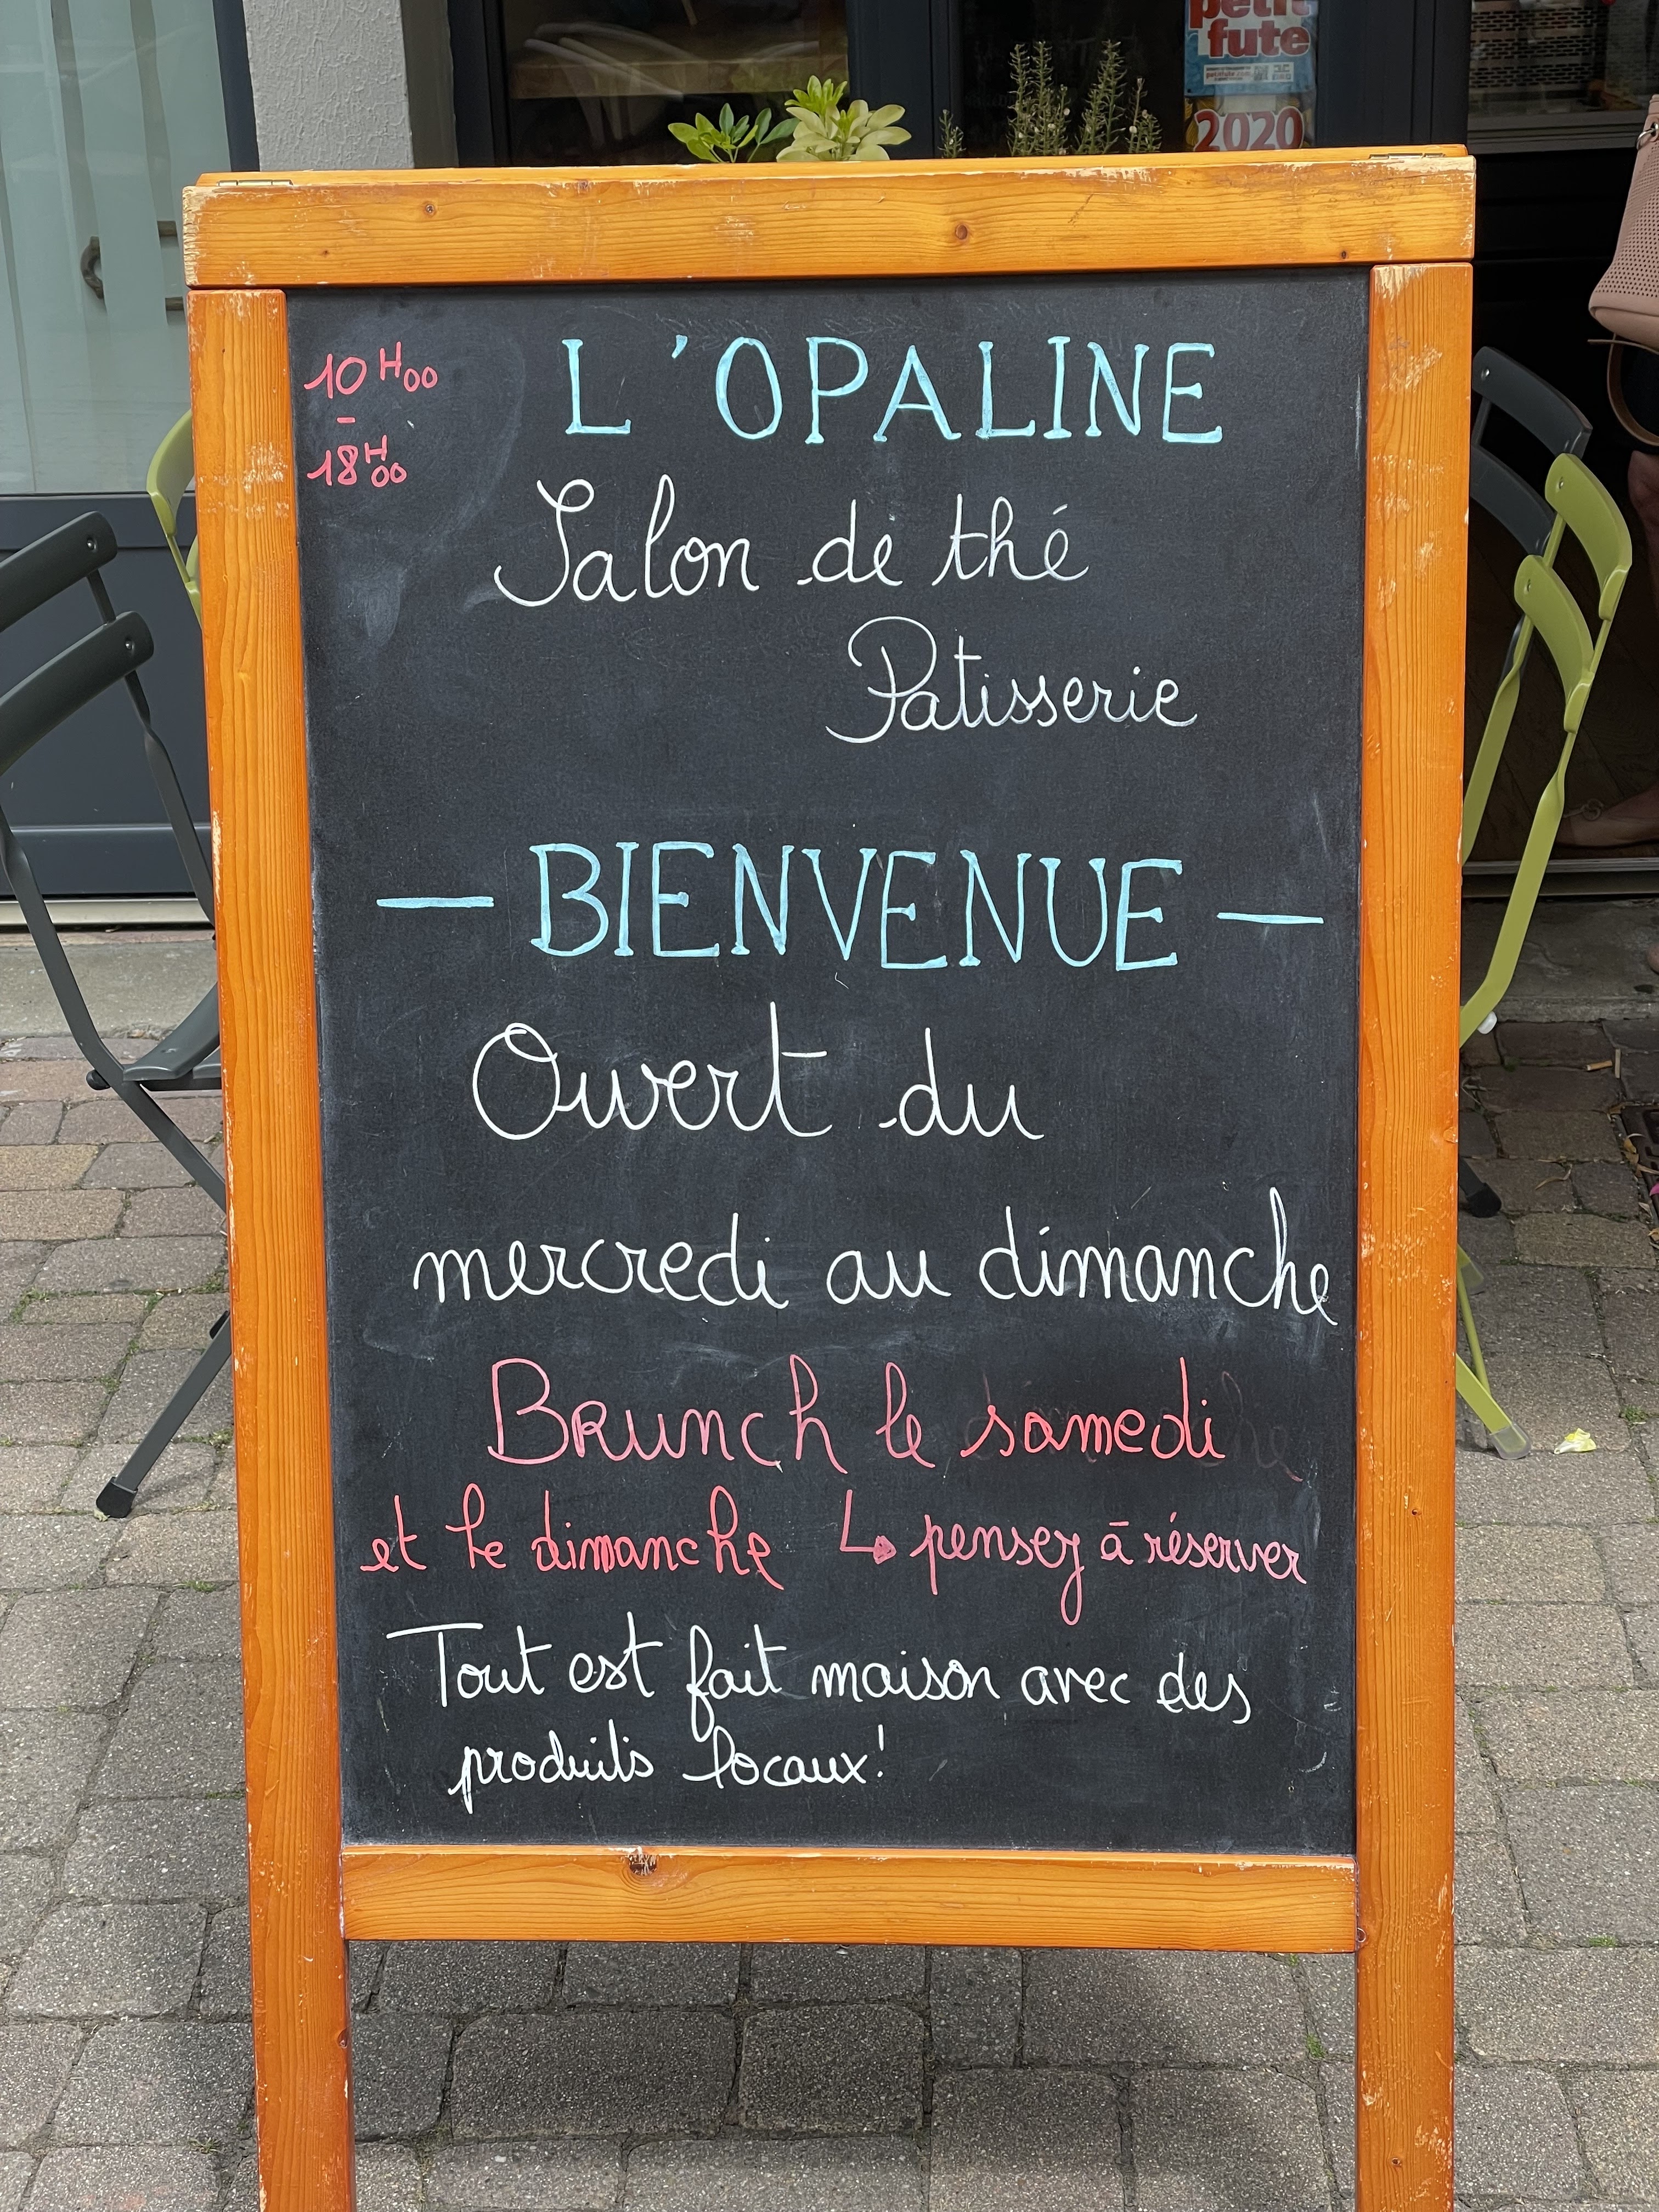 petit
fute
2020
10H00
-
18H00
L'OPALINE
Salon de thé
Patisserie
— BIENVENUE —
Ouvert du
mercredi au dimanche
Brunch le samedi
et le dimanche ↳ pensez à réserver
Tout est fait maison avec des
produits locaux!